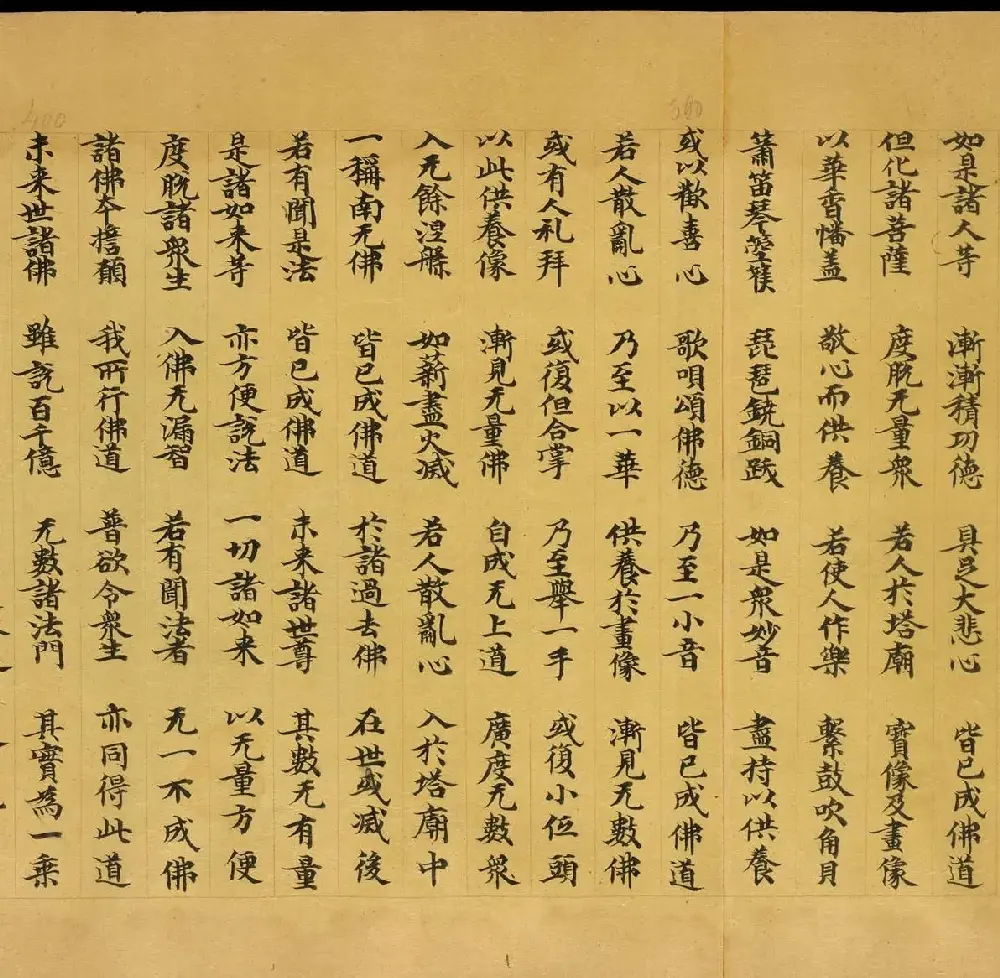 如是諸人等 漸漸積功德 具足大悲心 皆已成佛道
但化諸菩薩 度脫无量衆 若人於塔廟 寶像及畫像
以華香幡盖 敬心而供養 若使人作樂 擊鼓吹角貝
簫笛琴箜篌 琵琶鐃銅跋 如是衆妙音 盡持以供養
或以歡喜心 歌唄頌佛德 乃至一小音 皆已成佛道
若人散亂心 乃至以一華 供養於畫像 漸見无數佛
或有人礼拜 或復但合掌 乃至舉一手 或復小伍頭
以此供養像 漸見无量佛 自成无上道 廣度无數衆
入无餘涅槃 如薪盡火滅 若人散亂心 入於塔廟中
一稱南无佛 皆已成佛道 於諸過去佛 在世或滅後
若有聞是法 皆已成佛道 未来諸世尊 其數无有量
是諸如来等 亦方便説法 一切諸如来 以无量方便
度脫諸衆生 入佛无漏智 若有聞法者 无一不成佛
諸佛本擔願 我所行佛道 普欲令衆生 亦同得此道
未来世諸佛 雖説百千億 无數諸法門 其實為一乗
400